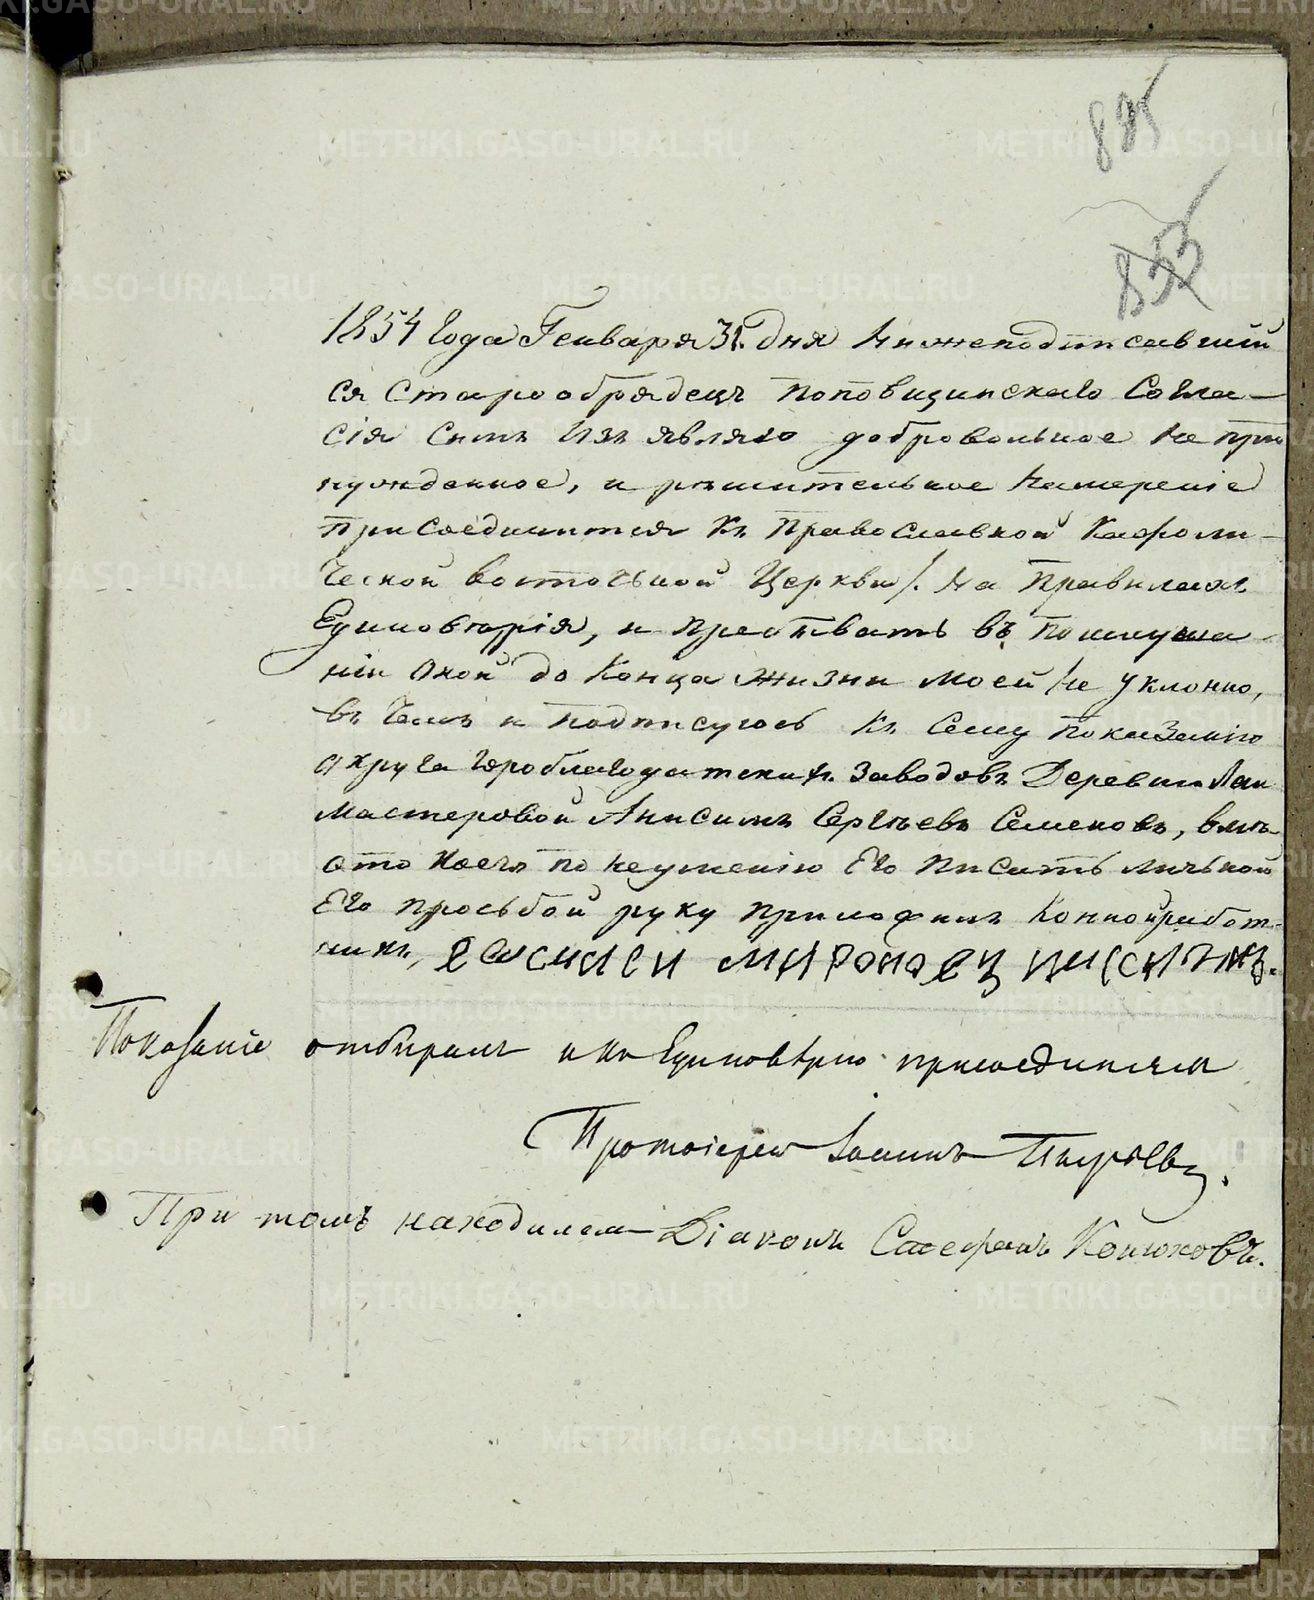 825
853
1854 Года Генваря 31. дня Нижеподписавшій
ся Старообрядецъ поповщинскаго Согла-
сія Симъ Изъявляю добровольное Не при
нужденное, и рѣшительное Намереніе
присоединится Къ Православной Кафоли-
ческой восточьной Церкви /. На Правилахъ
Единоверія, и пребывать въ Послуша-
ніи Оной до Конца жизни моей Не уклонно,
въ Чемъ и подписуюсь Къ Сему показанію
Округа Гороблагодатскихъ Заводовъ Деревни Лаи
Мастеровой Анисимъ Сергѣевъ Семеновъ, вмѣ-
сто Коего по Неумению Его Писать личьной
Его прозьбой руку приложилъ Коннойработ-
никъ, миронов
Показаніе отбиралъ и къ Единовѣрію присоединялъ
Протоіерей Іоаннъ
При томъ находился Діаконъ Стефанъ Конюховъ.